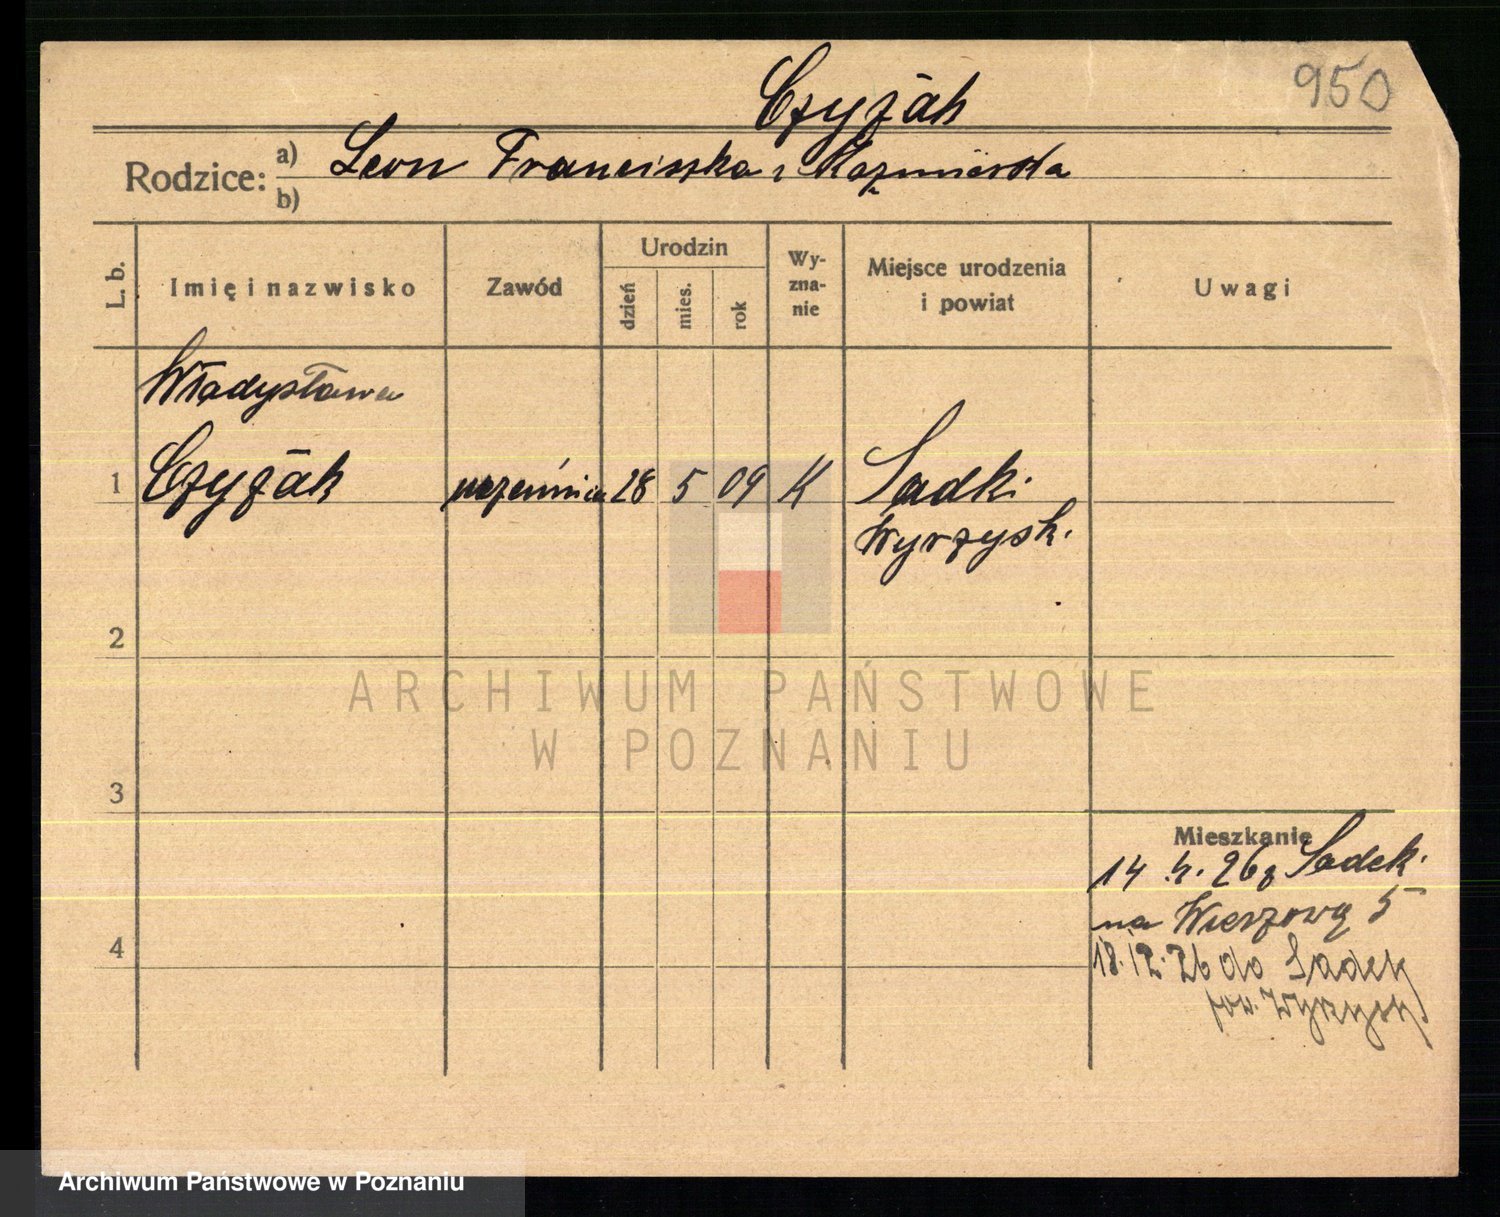 950
Czyżak
Rodzice: a) Leon Franciszka z Kaźmierska
b)
L. b. Imię i nazwisko Zawód Urodzin dzień mies. rok Wy-zna-nie Miejsce urodzenia i powiat Uwagi
Władysława
1 Czyżak uczennica 28 5 09 K Sadki
Wyrzysk.
2
ARCHIWUM PAŃSTWOWE
W POZNANIU
3
Mieszkanie
14 4. 26 z Sadek
na Wierzową 5
4
18.12.26 do Sadek
pow. Wyrzysk
Archiwum Państwowe w Poznaniu